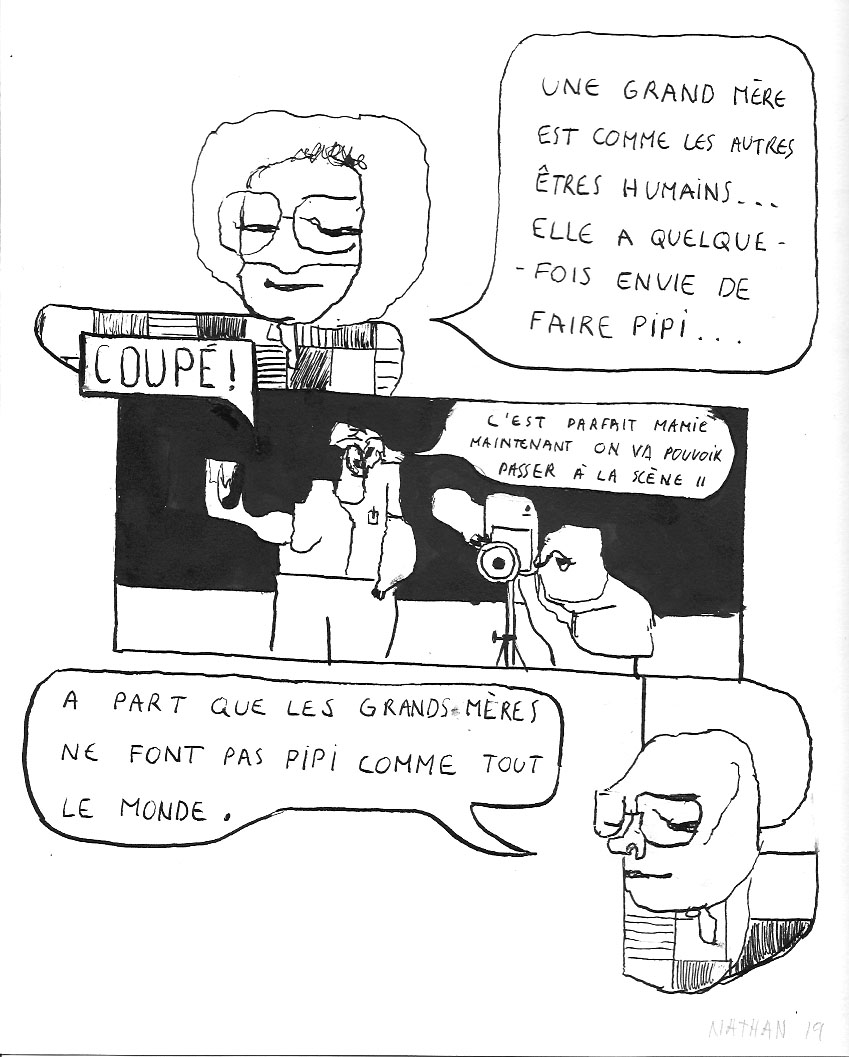 UNE GRAND MÈRE
EST COMME LES AUTRES
ÊTRES HUMAINS...
ELLE A QUELQUE-
-FOIS ENVIE DE
FAIRE PIPI...
COUPÉ!
C'EST PARFAIT MAMIE
MAINTENANT ON VA POUVOIR
PASSER À LA SCÈNE II
A PART QUE LES GRANDS-MÈRES
NE FONT PAS PIPI COMME TOUT
LE MONDE.
NATHAN 19